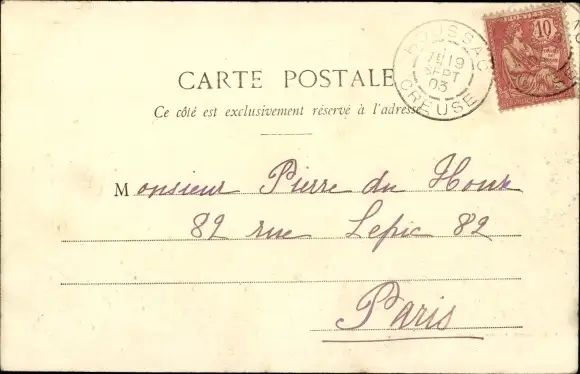 CARTE POSTALE
Ce côté est exclusivement réservé à l'adresse
BOUSSAC
19
SEPT
03
CREUSE
POSTES
10
Monsieur Pierre du
82 rue Lepic 82
Paris